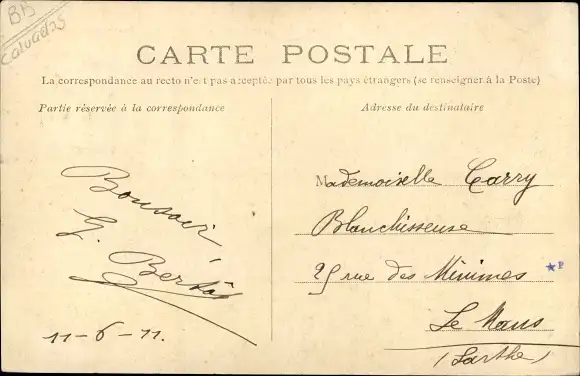 BB
Calvados
CARTE POSTALE
La correspondance au recto n'est pas acceptée par tous les pays étrangers (se renseigner à la Poste)
Partie réservée à la correspondance
Adresse du destinataire
Bonsoir
G.
11-6-11.
Mademoiselle Carry
Blanchisseuse
25 rue des Minimes
Le Mans
(Sarthe)
★P